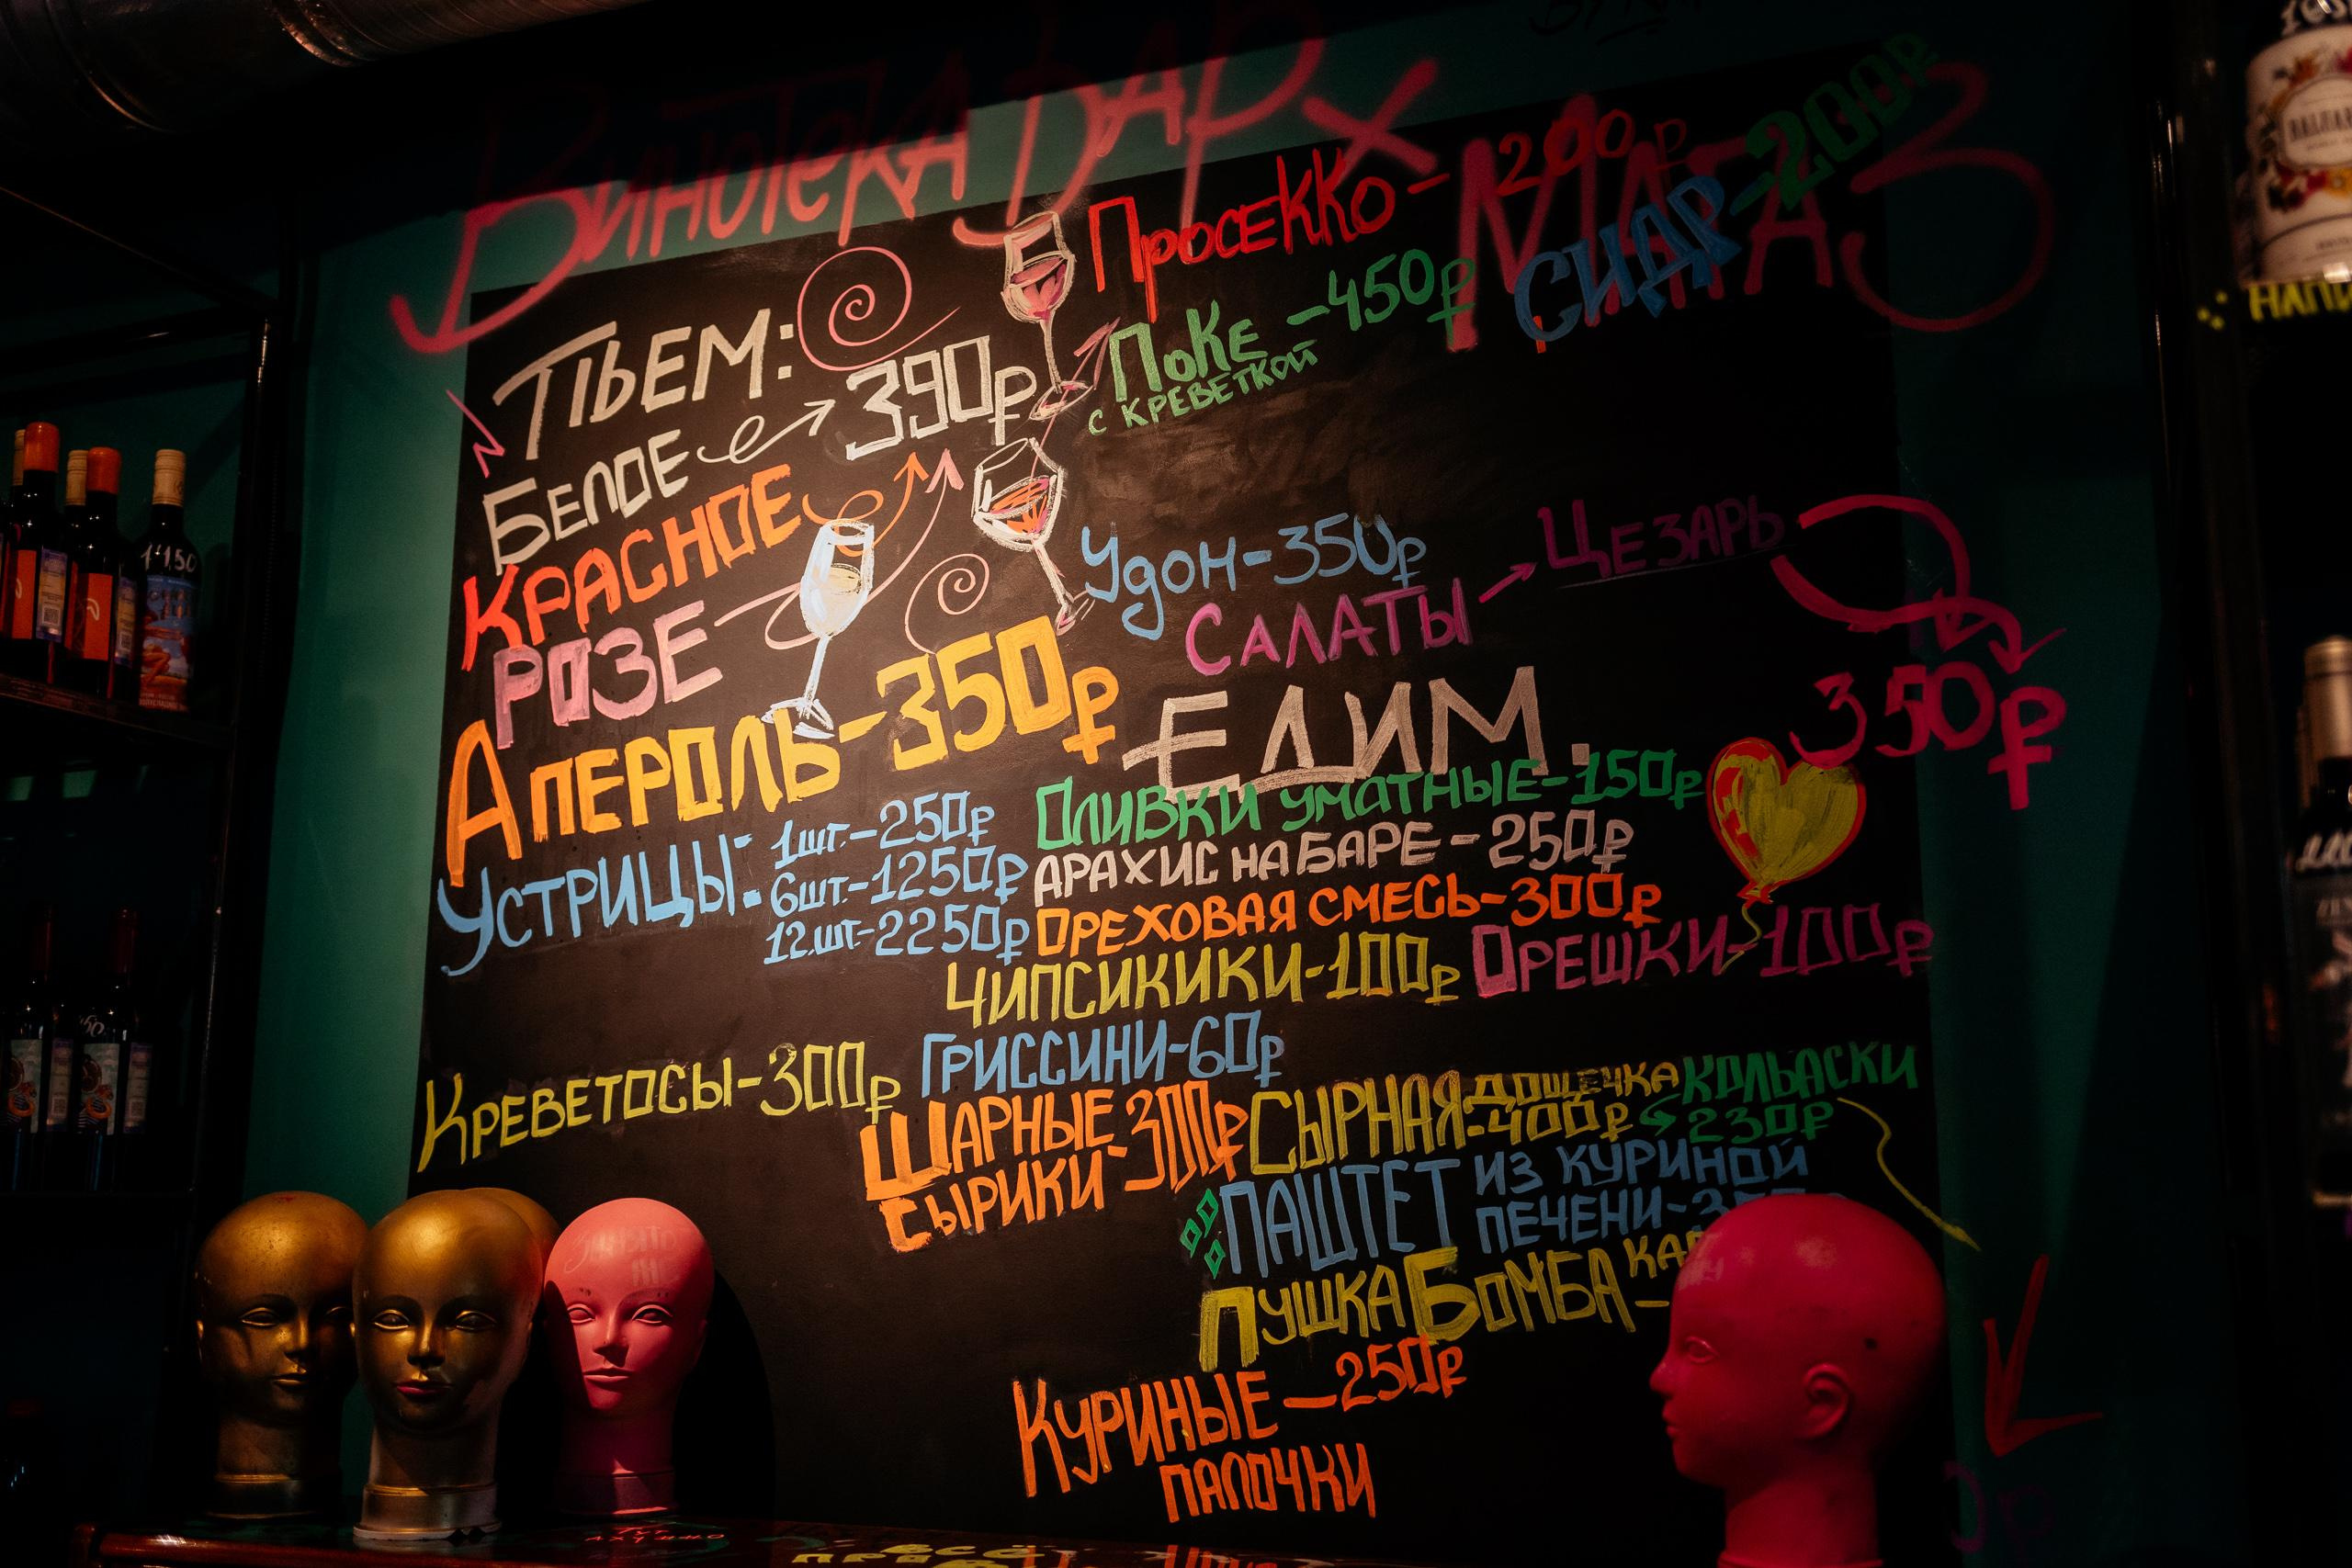 Винотека Бар х Магаз
Пьем:
Белое 390₽
Красное
Розе
Апероль-350₽
Устрицы: 1шт.-250₽
6шт.-1250₽
12.шт-2250₽
Креветосы-300₽
Просекко-200₽
Сидр-200₽
Поке-450₽
с креветкой
Удон-350₽
Салаты Цезарь
350₽
Едим.
Оливки уматные-150₽
Арахис на баре-250₽
Ореховая смесь-300₽
Орешки-100₽
Чипсикики-100₽
Гриссини-60₽
Шарные сырики-300₽
Сырная дощечка-400₽
Кольаски 230₽
Паштет из куриной
печени-
Пушка Бомба
Куриные-250₽
палочки
1150